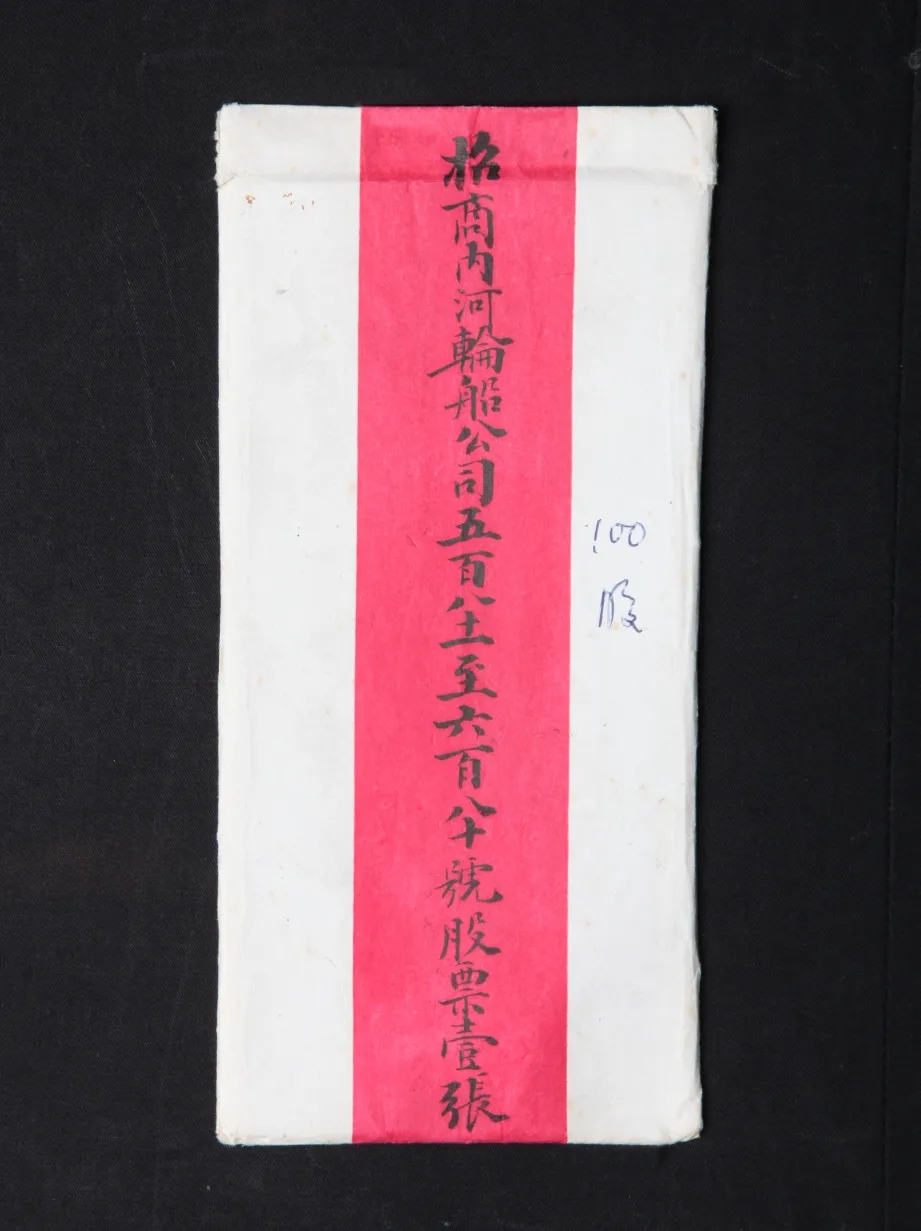 招商内河輪船公司五百八十一至六百八十號股票壹張
100
股